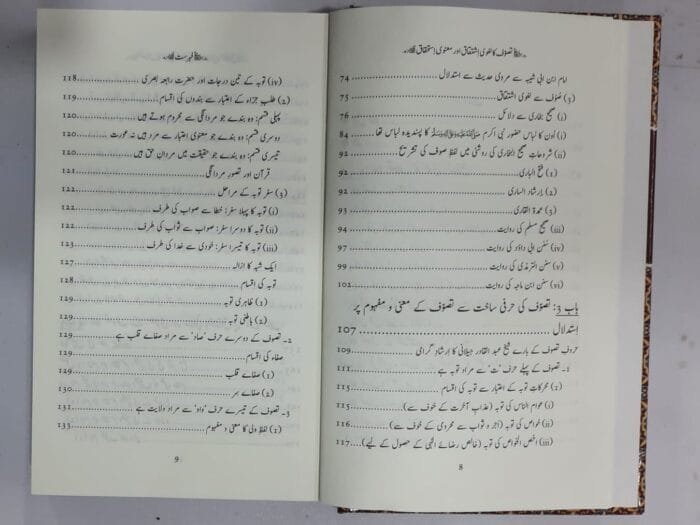 تصوّف کا لغوی اِشتقاق اور معنوی اِستحقاق
امام ابن ابی شیبہ سے مروی حدیث سے استدلال 74
(3) صُوف سے لغوی اشتقاق 75
(i) صحیح بخاری سے دلائل 76
(i) اُون کا لباس حضور نبی اکرم ﷺ کا پسندیدہ لباس تھا 84
(ii) شروحاتِ صحیح البخاری کی روشنی میں لفظِ صوف کی تشریح 92
(1) فتح الباری 92
(2) اِرشاد الساری 92
(3) عمدۃ القاری 93
(iii) صحیح مسلم کی روایت 94
(iv) سنن ابی داؤد کی روایت 97
(v) سنن الترمذی کی روایت 99
(vi) سنن ابن ماجہ کی روایت 102
باب 3: تصوّف کی حرفی ساخت سے تصوّف کے معنٰی و مفہوم پر
اِستدلال 107
حروفِ تصوف کے بارے شیخ عبد القادر جیلانی کا اِرشادِ گرامی 109
1۔ تصوف کے پہلے حرف ’ت‘ سے مراد توبہ ہے 111
(1) محرکاتِ توبہ کے اعتبار سے توبہ کی اقسام
(i) عوام الناس کی توبہ (عذابِ آخرت کے خوف سے) 115
(ii) خواص کی توبہ (اَجر و ثواب سے محرومی کے خوف سے) 116
(iii) اخص الخواص کی توبہ (خالص رضائے الٰہی کے حصول کے لیے) 117
8
فہرست
(iv) توبہ کے تین درجات اور حضرت رابعہ بصری 118
(2) طلبِ جزاء کے اعتبار سے بندوں کی اقسام 119
پہلی قسم: وہ بندے جو مردانگی سے محروم ہوتے ہیں 120
دوسری قسم: وہ بندے جو معنوی اعتبار سے مرد ہیں نہ عورت 120
تیسری قسم: وہ بندے جو حقیقت میں مردانِ حق ہیں 120
قرآن اور تصورِ مردانگی 121
(3) سفرِ توبہ کے مراحل 122
(i) توبہ کا پہلا سفر: خطا سے صواب کی طرف 122
(ii) توبہ کا دوسرا سفر: صواب سے ثواب کی طرف 122
(iii) توبہ کا تیسرا سفر: خودی سے خدا کی طرف 123
ایک شبہ کا ازالہ 127
توبہ کی اقسام 128
(1) ظاہری توبہ 129
(2) باطنی توبہ 129
2۔ تصوف کے دوسرے حرف ’صاد‘ سے مراد صفائے قلب ہے 129
صفاء کی اقسام 129
(1) صفائے قلب 129
(2) صفائے سر 130
3۔ تصوف کے تیسرے حرف ’واؤ‘ سے مراد ولایت ہے 131
(1) لفظِ ولی کا معنٰی و مفہوم 133
9